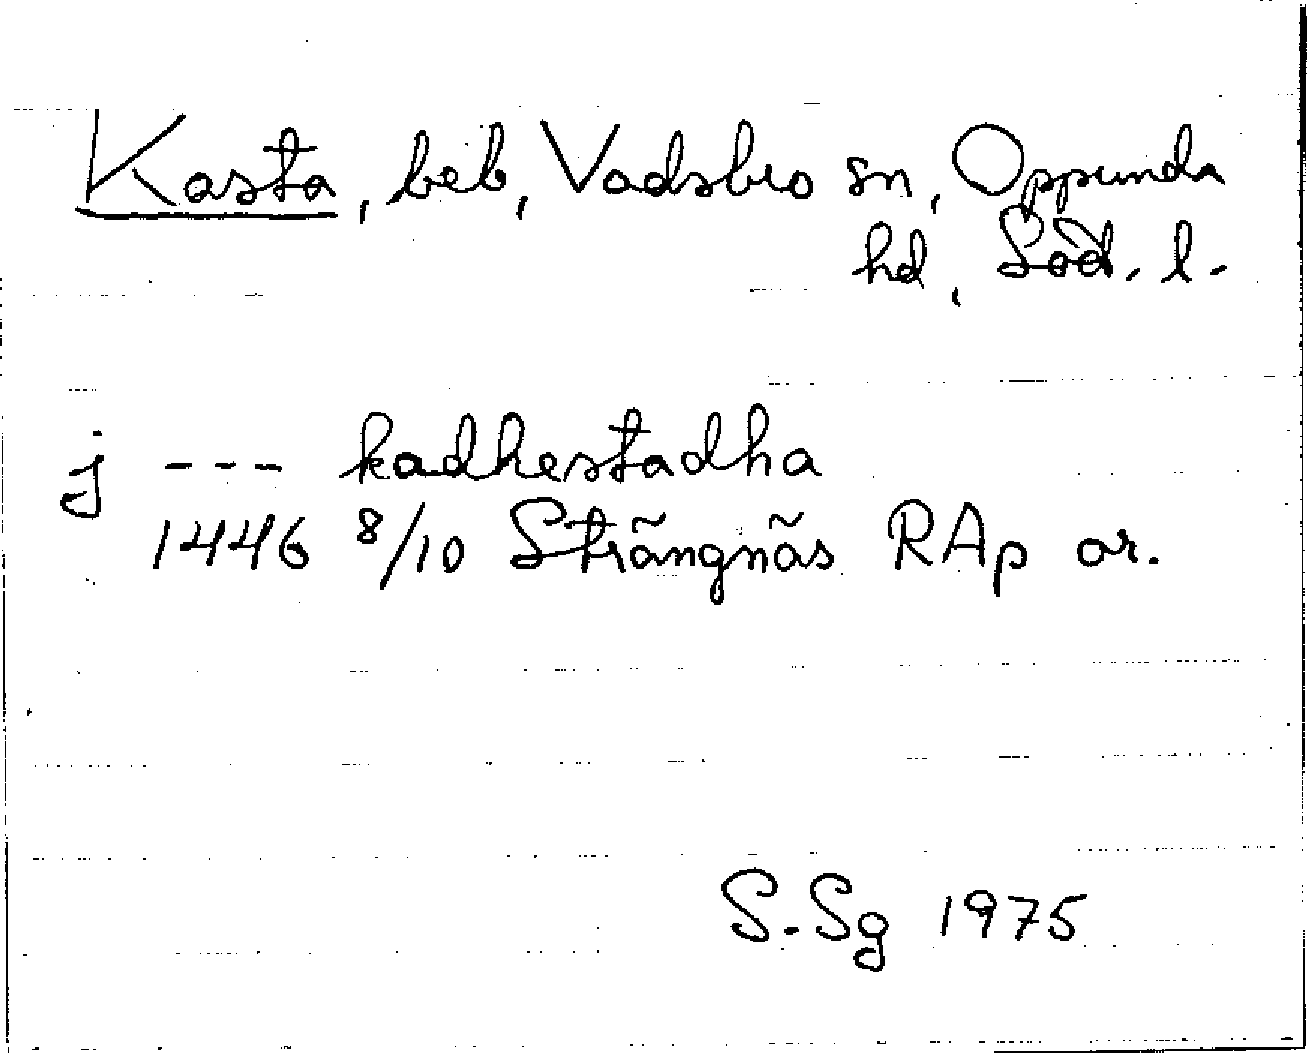 Kasta, beb, Vadsbro sn, Oppunda
hd, Söd. l.
j --- kadhestadha
1446 8/10 Strängnäs RAp or.
S.Sg 1975